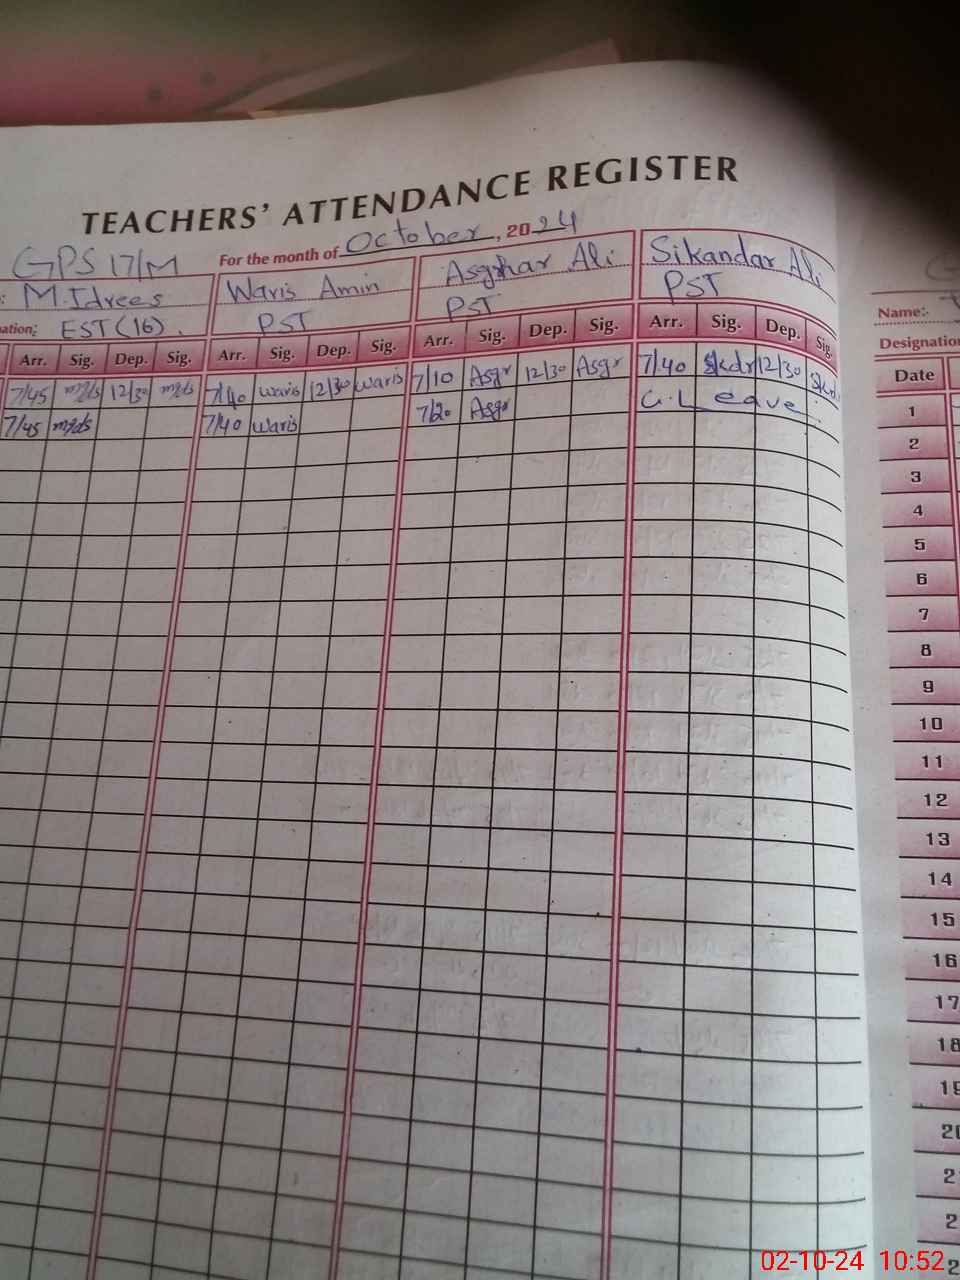 TEACHERS' ATTENDANCE REGISTER
GPS 17/M For the month of October, 2024
M.Idrees Waris Amin Asghar Ali Sikandar Ali
EST (16). PST PST PST
Arr. Sig. Dep. Sig. Arr. Sig. Dep. Sig. Arr. Sig. Dep. Sig. Arr. Sig. Dep. Sig.
7/45 12/30 7/40 waris 12/30 waris 7/10 Asgr 12/30 Asgr 7/40 Skdr 12/30 Skd
7/45 7/40 waris 7/20 Asgr C.Leave
Name:-
Designation
Date
1
2
3
4
5
6
7
8
9
10
11
12
13
14
15
16
17
18
02-10-24 10:52